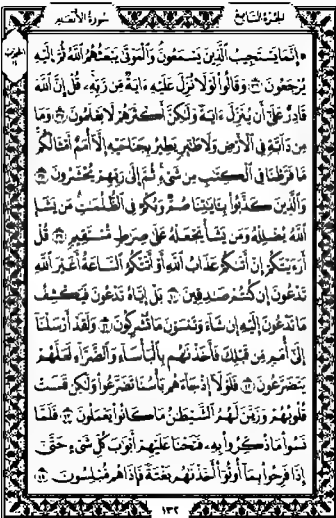 الجزء السابع سورة الأنعام
۞ إِنَّمَا يَسْتَجِيبُ الَّذِينَ يَسْمَعُونَ وَالْمَوْتَىٰ يَبْعَثُهُمُ اللَّهُ ثُمَّ إِلَيْهِ
يُرْجَعُونَ ٣٦ وَقَالُوا لَوْلَا نُزِّلَ عَلَيْهِ آيَةٌ مِّن رَّبِّهِ قُلْ إِنَّ اللَّهَ
قَادِرٌ عَلَىٰ أَن يُنَزِّلَ آيَةً وَلَٰكِنَّ أَكْثَرَهُمْ لَا يَعْلَمُونَ ٣٧ وَمَا
مِن دَابَّةٍ فِي الْأَرْضِ وَلَا طَائِرٍ يَطِيرُ بِجَنَاحَيْهِ إِلَّا أُمَمٌ أَمْثَالُكُم
مَّا فَرَّطْنَا فِي الْكِتَابِ مِن شَيْءٍ ثُمَّ إِلَىٰ رَبِّهِمْ يُحْشَرُونَ ٣٨
وَالَّذِينَ كَذَّبُوا بِآيَاتِنَا صُمٌّ وَبُكْمٌ فِي الظُّلُمَاتِ مَن يَشَإِ
اللَّهُ يُضْلِلْهُ وَمَن يَشَأْ يَجْعَلْهُ عَلَىٰ صِرَاطٍ مُّسْتَقِيمٍ ٣٩ قُلْ
أَرَأَيْتَكُمْ إِنْ أَتَاكُمْ عَذَابُ اللَّهِ أَوْ أَتَتْكُمُ السَّاعَةُ أَغَيْرَ اللَّهِ
تَدْعُونَ إِن كُنتُمْ صَادِقِينَ ٤٠ بَلْ إِيَّاهُ تَدْعُونَ فَيَكْشِفُ
مَا تَدْعُونَ إِلَيْهِ إِن شَاءَ وَتَنسَوْنَ مَا تُشْرِكُونَ ٤١ وَلَقَدْ أَرْسَلْنَا
إِلَىٰ أُمَمٍ مِّن قَبْلِكَ فَأَخَذْنَاهُم بِالْبَأْسَاءِ وَالضَّرَّاءِ لَعَلَّهُمْ
يَتَضَرَّعُونَ ٤٢ فَلَوْلَا إِذْ جَاءَهُم بَأْسُنَا تَضَرَّعُوا وَلَٰكِن قَسَتْ
قُلُوبُهُمْ وَزَيَّنَ لَهُمُ الشَّيْطَانُ مَا كَانُوا يَعْمَلُونَ ٤٣ فَلَمَّا
نَسُوا مَا ذُكِّرُوا بِهِ فَتَحْنَا عَلَيْهِمْ أَبْوَابَ كُلِّ شَيْءٍ حَتَّىٰ
إِذَا فَرِحُوا بِمَا أُوتُوا أَخَذْنَاهُم بَغْتَةً فَإِذَا هُم مُّبْلِسُونَ ٤٤
١٣٢